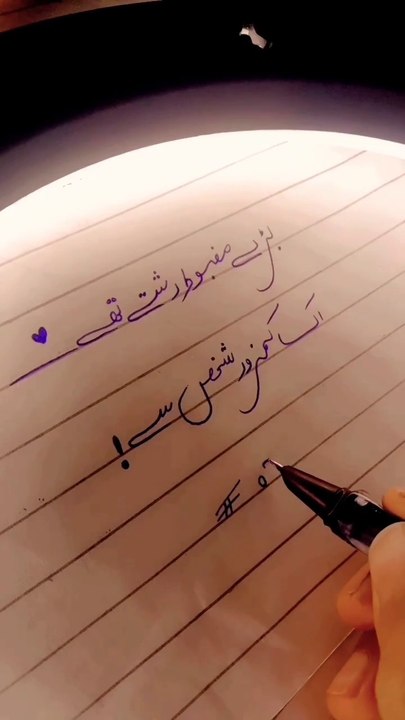 بڑے مضبوط رشتے تھے
اک کمزور شخص سے!
#